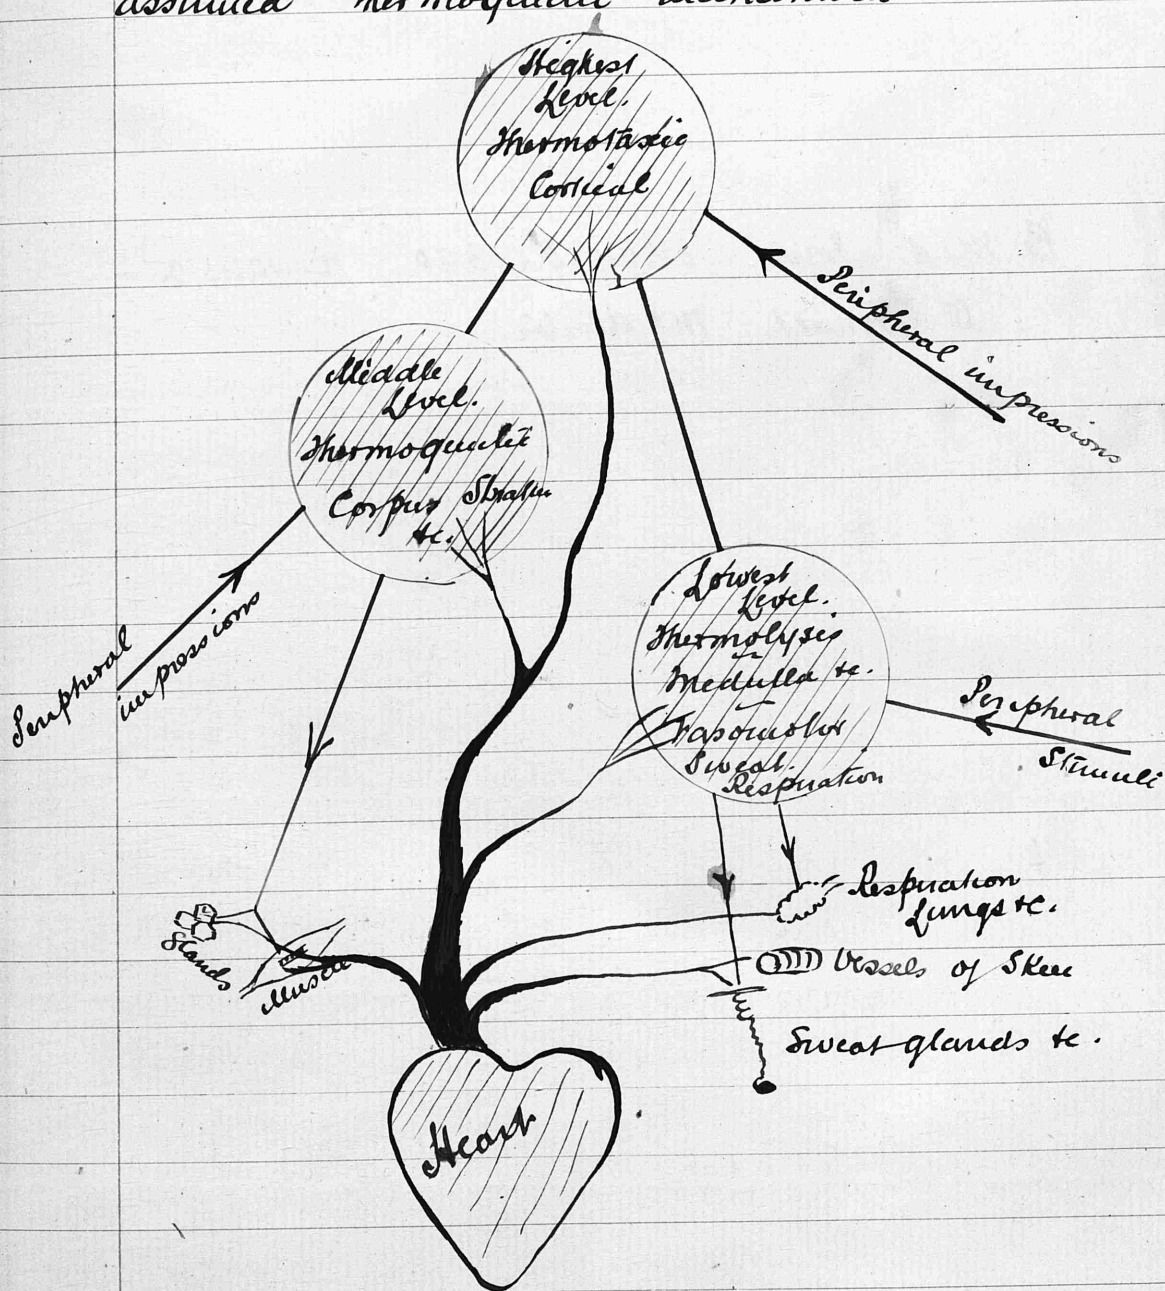 assumed thermogenetic mechanism
Highest
Level.
Thermotaxic
Cortical
Peripheral impressions
Middle
Level.
Thermogenetic
Corpus Striatum
&c.
Peripheral
impressions
Lowest
Level.
Thermolysis
Medulla &c.
Vasomotor
Sweat.
Respiration
Peripheral
Stimuli
Respiration
Lungs &c.
Glands
Muscle
Vessels of Skin
Sweat glands &c.
Heart